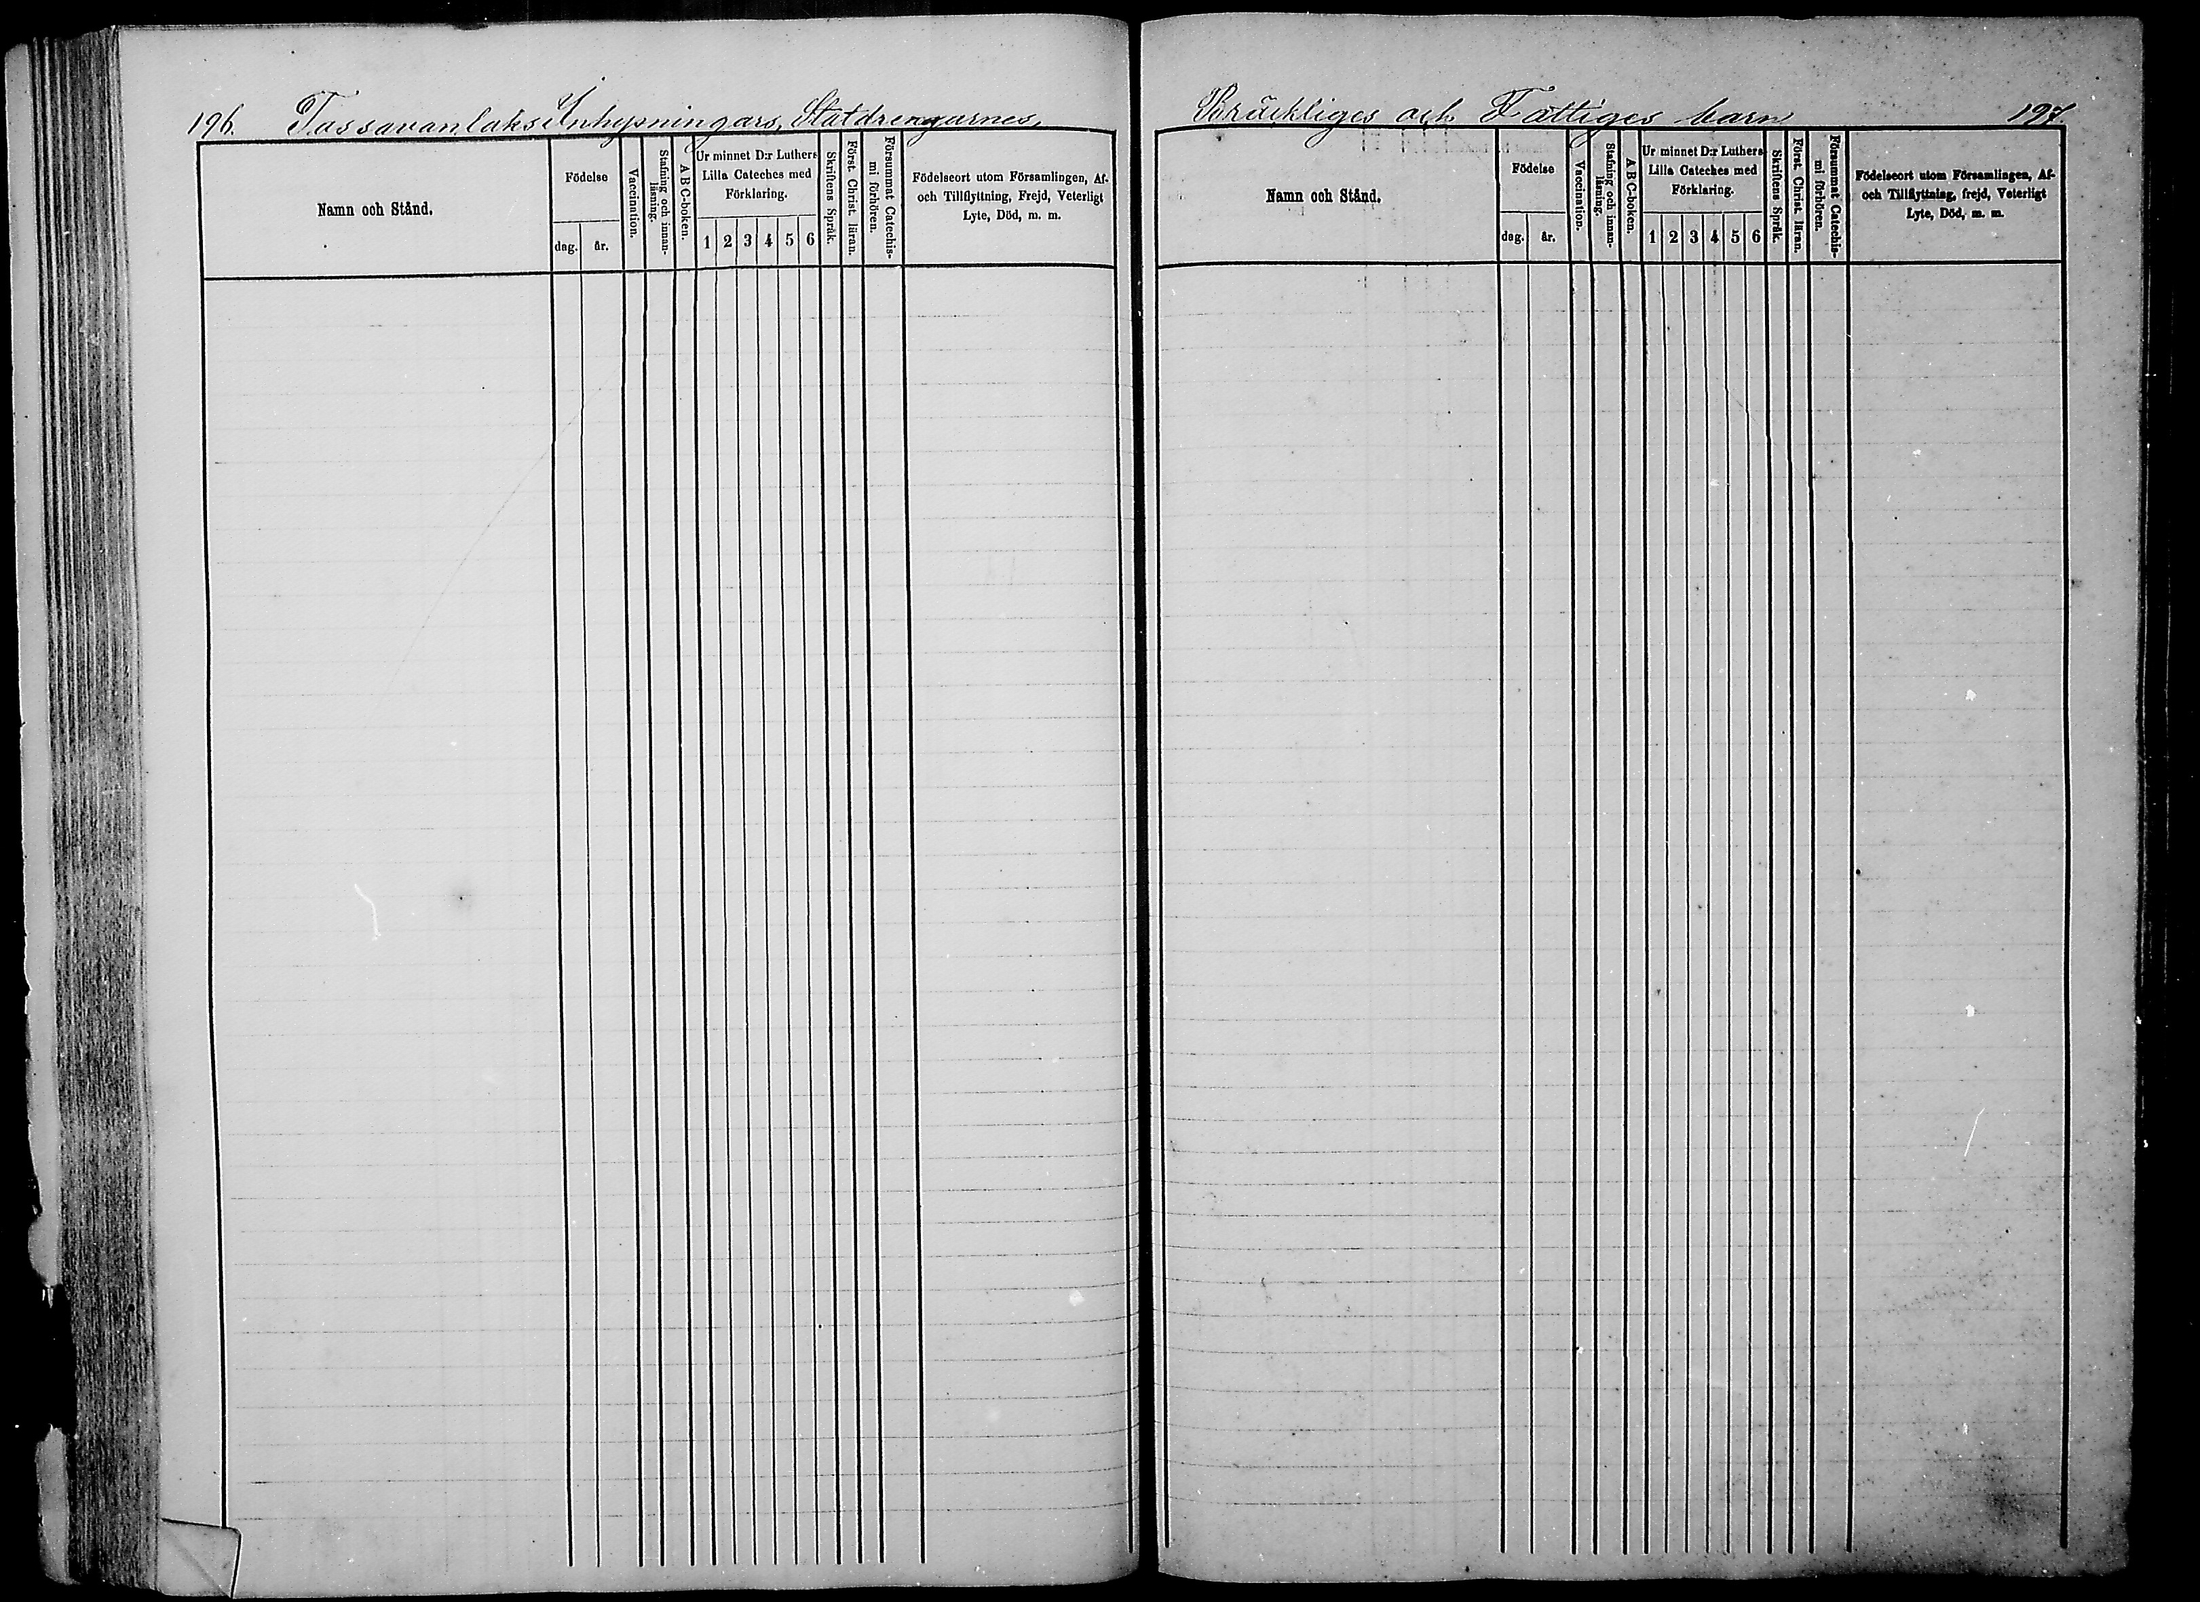 196. Tassavanlaks Inhysningars, Statdrengarnes,
Namn och Stånd.
Födelse
dag.
år.
Vaccination.
Stafning och innan-
läsning.
A B C-boken.
Ur minnet D:r Luthers
Lilla Cateches med
Förklaring.
1 2 3 4 5 6
Skriftens Språk.
Först. Christ. läran.
Försummat Catechis-
mi förhören.
Födelseort utom Församlingen, Af-
och Tillflyttning, Frejd, Veterligt
Lyte, Död, m. m.
Bräckliges och Fattiges barn 197
Namn och Stånd.
Födelse
dag.
år.
Vaccination.
Stafning och innan-
läsning.
A B C-boken.
Ur minnet D:r Luthers
Lilla Cateches med
Förklaring.
1 2 3 4 5 6
Skriftens Språk.
Först. Christ. läran.
Försummat Catechis-
mi förhören.
Födelseort utom Församlingen, Af-
och Tillflyttning, frejd, Veterligt
Lyte, Död, m. m.